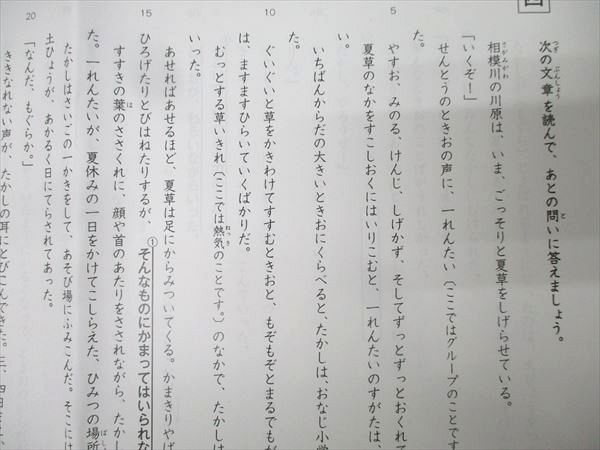 四
次の文章を読んで、あとの問いに答えましょう。
相模川の川原は、いま、ごっそりと夏草をしげらせている。
「いくぞ!」
せんとうのときおの声に、一れんたい〔ここではグループのことです
た。
やすお、みのる、けんじ、しげかず、そしてずっとずっとおくれて
夏草のなかをすこしおくにはいりこむと、一れんたいのすがたは、
い。
いちばんからだの大きいときおにくらべると、たかしは、おなじ小学
た。
ぐいぐいと草をかきわけてすすむときおと、もぞもぞとまるでもが
は、ますますひらいていくばかりだ。
むっとする草いきれ〔ここでは熱気のことです。〕のなかで、たかしは
いった。
あせればあせるほど、夏草は足にからみついてくる。かまきりやば
ひろげたりとびはねたりするが、①そんなものにかまってはいられな
すすきの葉のささくれに、顔や首のあたりをさされながら、たかし
た。一れんたいが、夏休みの一日をかけてこしらえた、ひみつの場所
たかしはさいごの一かきをして、あそび場にふみこんだ。そこには
土ひょうが、あかるく日にてらされてあった。
「なんだ、もぐらか。」
ききなれない声が、たかしの耳にとびこんできた。三、四日まえ、
5
10
15
20